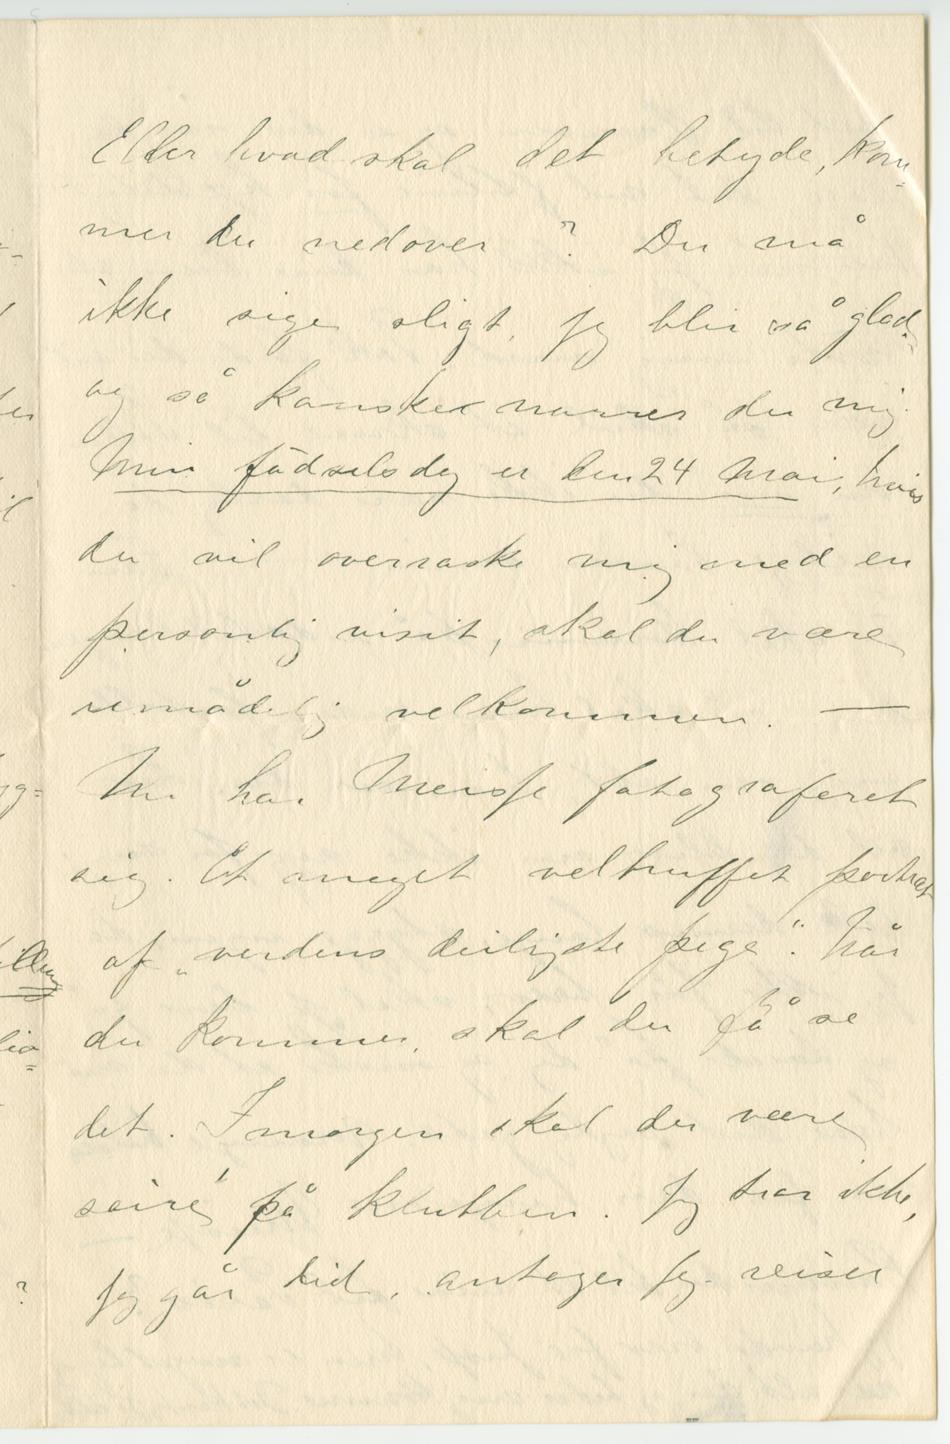 Eller hvad skal det betyde, kom-
mer du nedover? Du må
ikke sige sligt, jeg blir så glad,
og så kansker narrer du mig.
Min fødselsdag er den 24 Mai, hvis
du vil overraske mig med en
personlig visit, skal du være
umådelig velkommen. —
Nu har fotograferet
sig. Et meget veltruffet portræt
af „verdens deiligste pige“. Når
du kommer, skal du få se
det. Imorgen skal der være
soiré på klubben. Jeg tror ikke,
jeg går did, antager jeg reiser